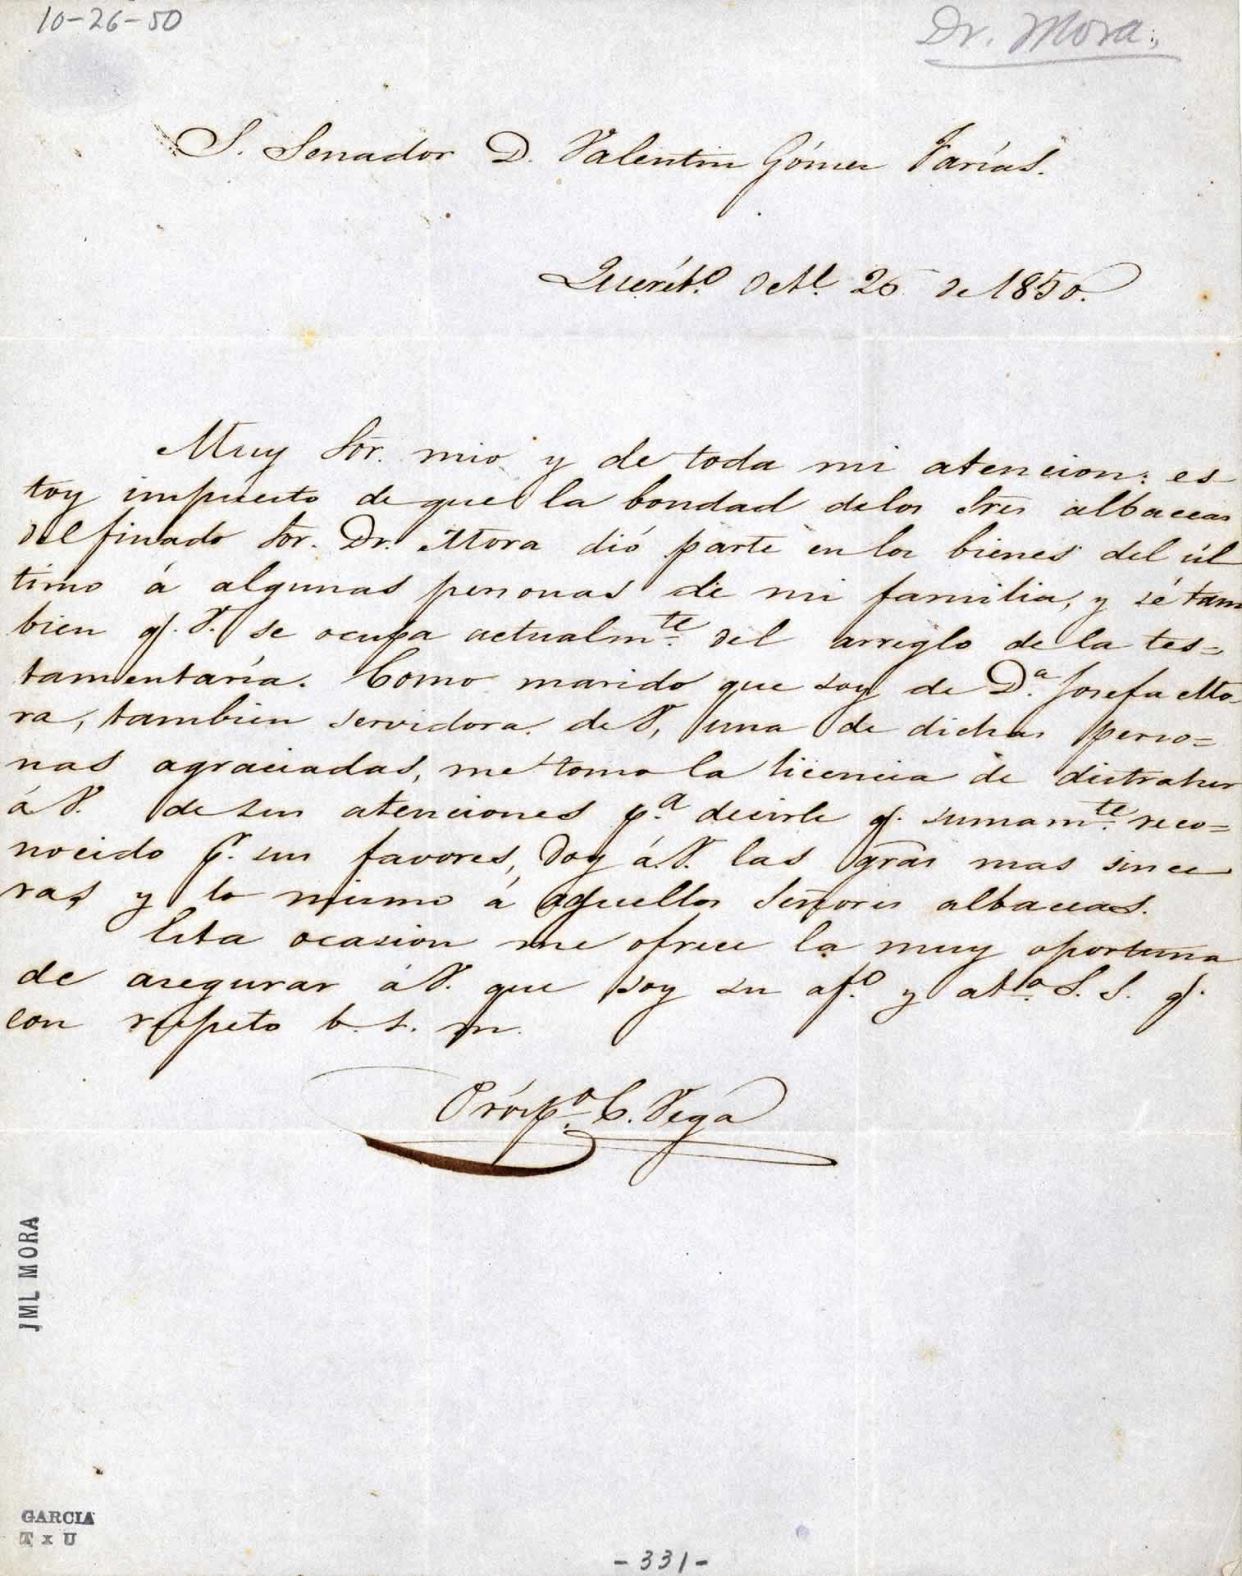 10-26-50
Dr. Mora.
S. Senador D. Valentin Gómez Farías.
Queréto. Octe. 26 de 1850.
Muy Sor. mio y de toda mi atencion: es
toy impuesto de que la bondad delos Sres albaceas
del finado Sor. Dr. Mora dió parte en los bienes del úl
timo á algunas personas de mi familia, y sé tam
bien q. V. se ocupa actualmte. del arreglo de la tes=
tamentaría. Como marido que soy de Da. Josefa Mo-
ra, tambien servidora de V, una de dichas perso=
nas agraciadas, me tomo la licencia de distraher
á V. de sus atenciones pa. decirle q. sumamte. reco=
nocido pr. sus favores, doy á V. las gras mas since
ras, y lo mismo á aquellos Señores albaceas.
Esta ocasion me ofrece la muy oportuna
de asegurar á V. que soy su afo. y atto. S. S. q.
con respeto b. s. m.
Próspo. C. Vega
JML MORA
GARCIA
T x U
-331-